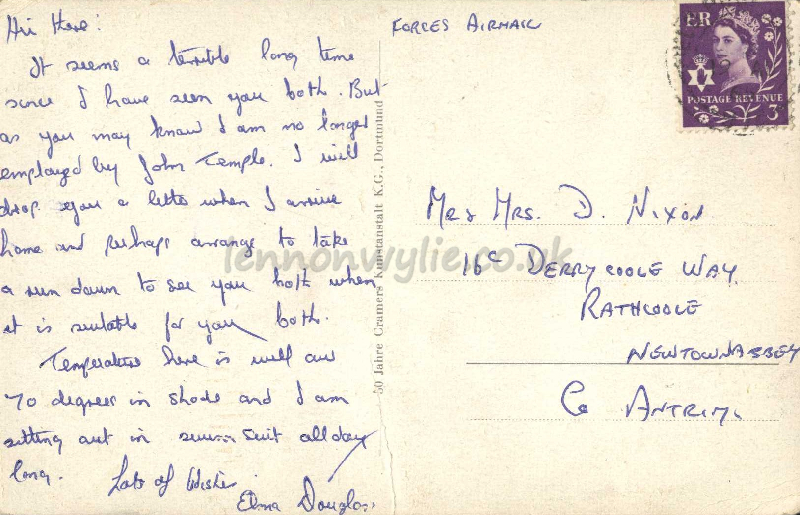 Hi there!
It seems a terrible long time
since I have seen you both. But
as you may know I am no longer
employed by John Temple. I will
drop you a letter when I arrive
home and perhaps arrange to take
a run down to see you both when
it is suitable for you both.
Temperature here is well over
70 degrees in shade and I am
sitting out in swim suit all day
long.
Lots of Wishes
Elma Douglas.
50 Jahre Cramers Kunstanstalt K.G., Dortmund
FORCES AIRMAIL
E R
POSTAGE REVENUE
3D
Mr & Mrs. D. Nixon
16C DERRYCOOLE WAY,
RATHCOOLE
NEWTOWNABBEY
Co ANTRIM.
lennonwylie.co.uk